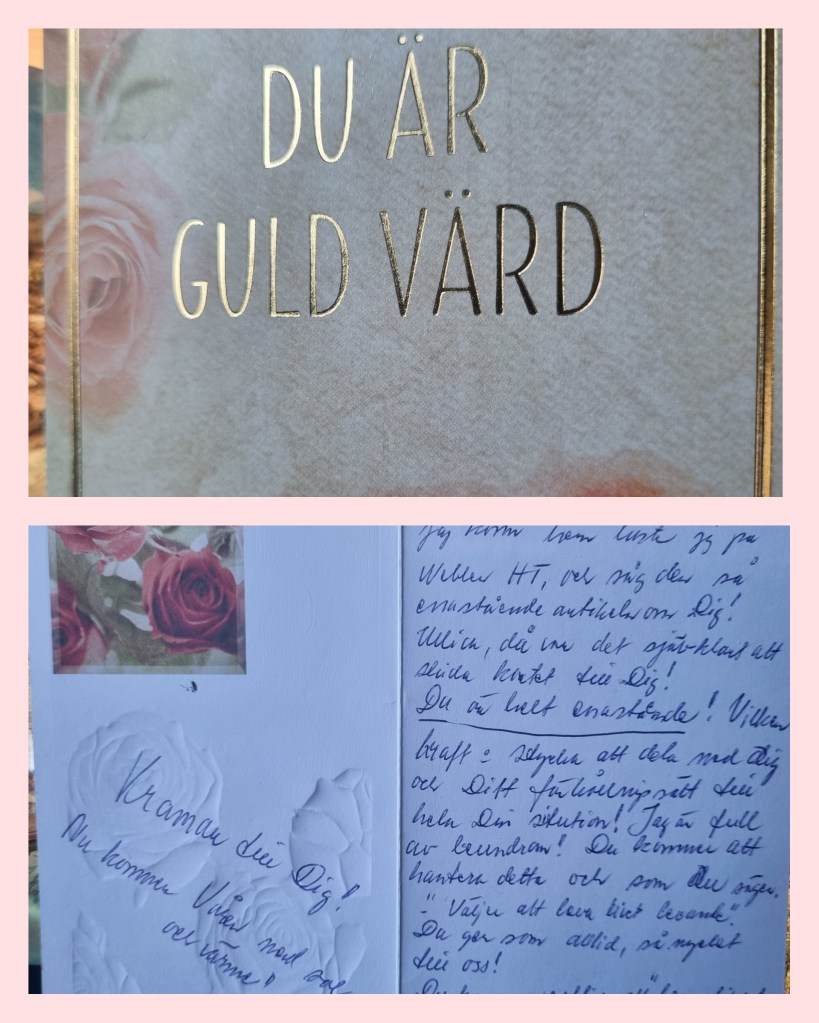 DU ÄR
GULD VÄRD
Kramar till Dig!
Nu kommer Våren med sol
och värme!
jag kom hem läste jag på
Webben HT, och såg den så
enastående artikeln om Dig!
då var det självklart att
skicka kortet till Dig!
Du är helt enastående! Vilken
kraft o styrka att dela med dig
och Ditt förhållningssätt till
hela Din situation! Jag är full
av beundran! Du kommer att
hantera detta och som du säger.
-"Väljer att leva livet levande".
Du ger som alltid, så mycket
till oss!